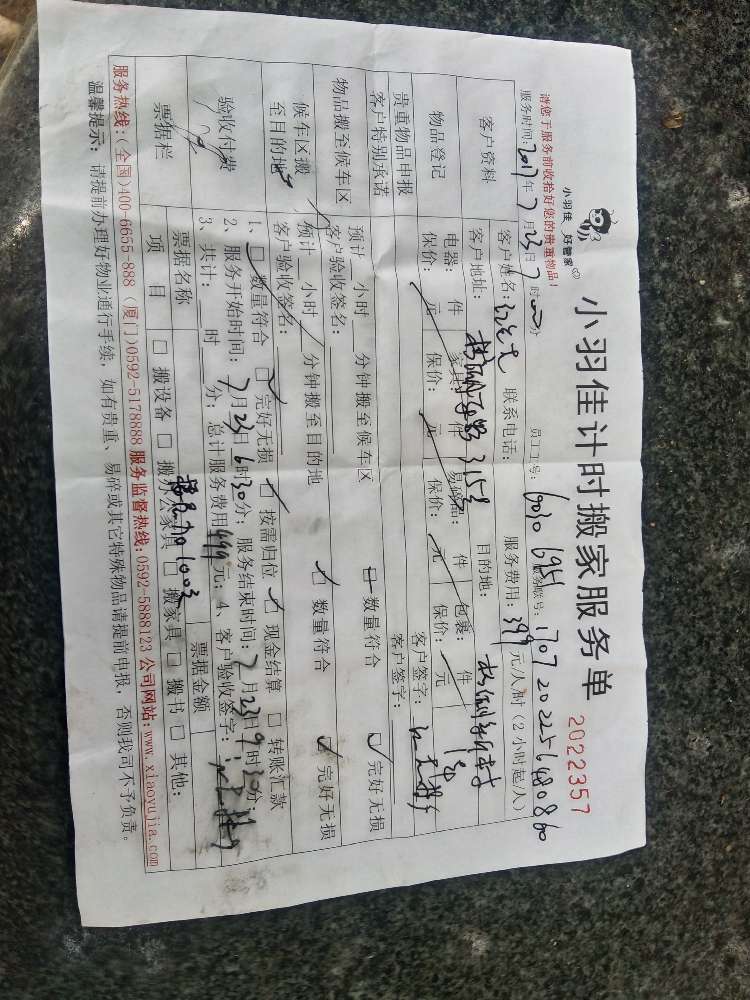 小羽佳计时搬家服务单
小羽佳 好管家
2022357
请您于服务前收拾好您的贵重物品！
服务时间：2017年7月23日7时00分 员工工号：6010 6951 服务联号：170720225640860
客户资料
客户姓名： 联系电话： 服务费用：399元/人/时（2小时起/人）
客户地址： 315号 目的地：
物品登记
电器： 件 家具： 件 易碎品： 件 包裹： 件
保价： 元 保价： 元 保价： 元 保价： 元
贵重物品申报 客户签字：
客户特别承诺 客户签字：
物品搬至候车区
预计 小时 分钟搬至候车区 □ 数量符合 □ 完好无损
客户验收签名：
候车区搬至目的地
预计 小时 分钟搬至目的地 □ 数量符合 □ 完好无损
客户验收签名：
验收付费
1、□ 数量符合 □ 完好无损 □ 按需归位 □ 现金结算 □ 转账汇款
2、服务开始时间：7月23日6时30分；服务结束时间：7月23日9时30分；
3、共计： 时 分；总计服务费用499元；4、客户验收签字：
票据栏
票据名称 1003 票据金额
项目 □ 搬设备 □ 搬办公家具 □ 搬家具 □ 搬书 □ 其他：
服务热线：(全国)400-6655-888 (厦门)0592-5178888 服务监督热线：0592-5888123 公司网站：www.xiaoyujia.com
温馨提示：请提前办理好物业通行手续，如有贵重、易碎或其它特殊物品请提前申报，否则我司不予负责。